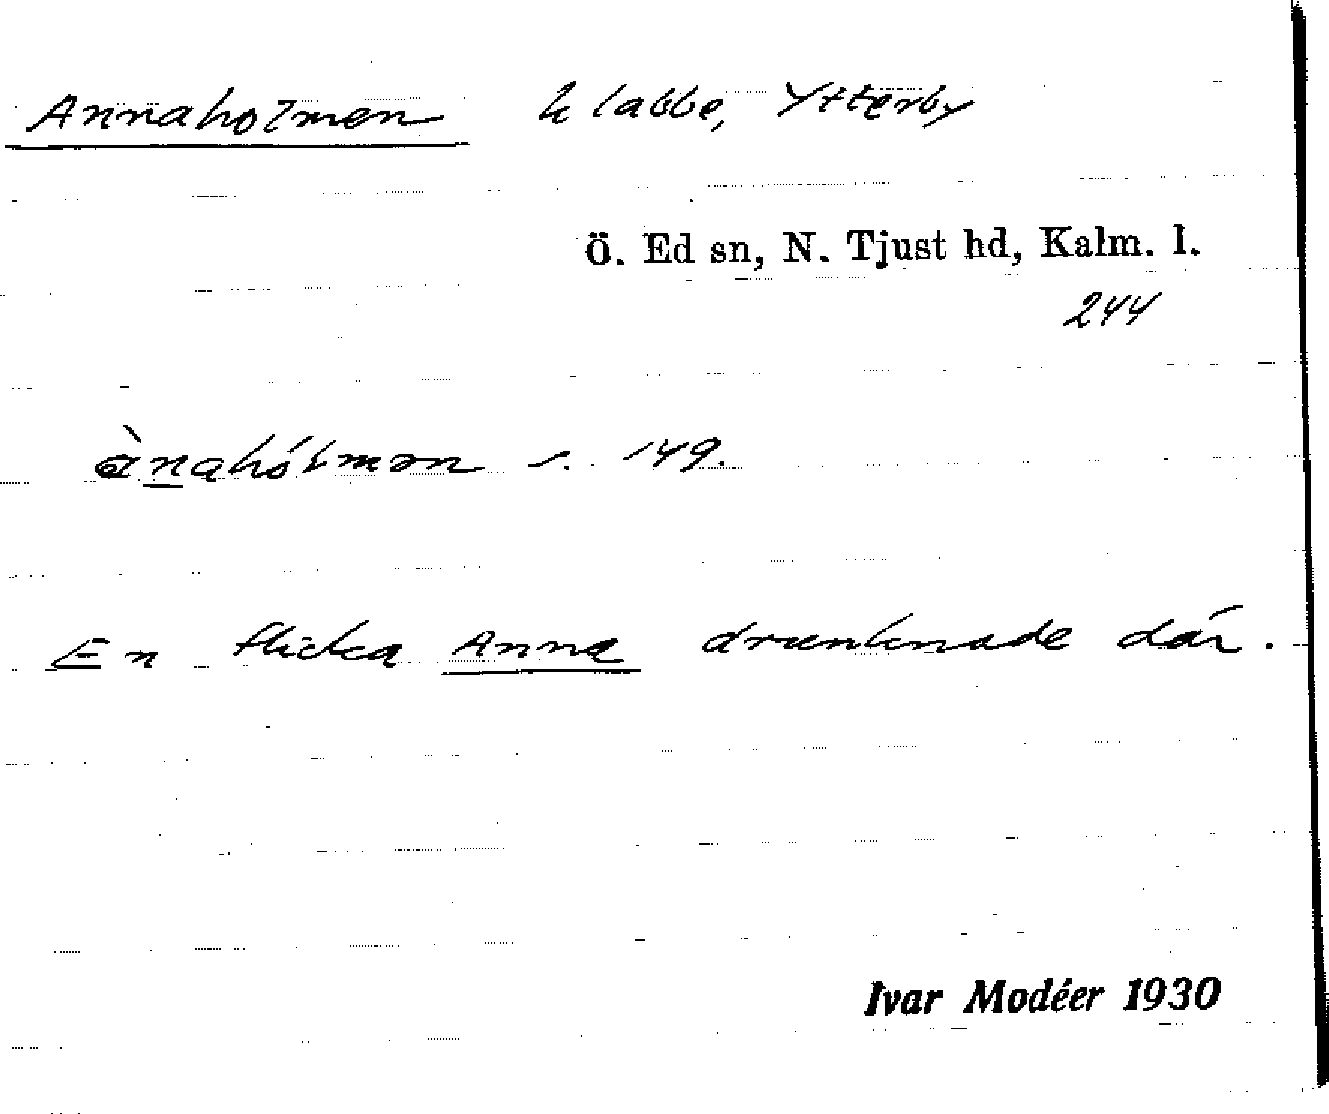 Annaholmen klabbe, Ytterby
Ö. Ed sn, N. Tjust hd, Kalm. l.
244
ànahólmən s. 149.
En flicka Anna drunknade där.
Ivar Modéer 1930